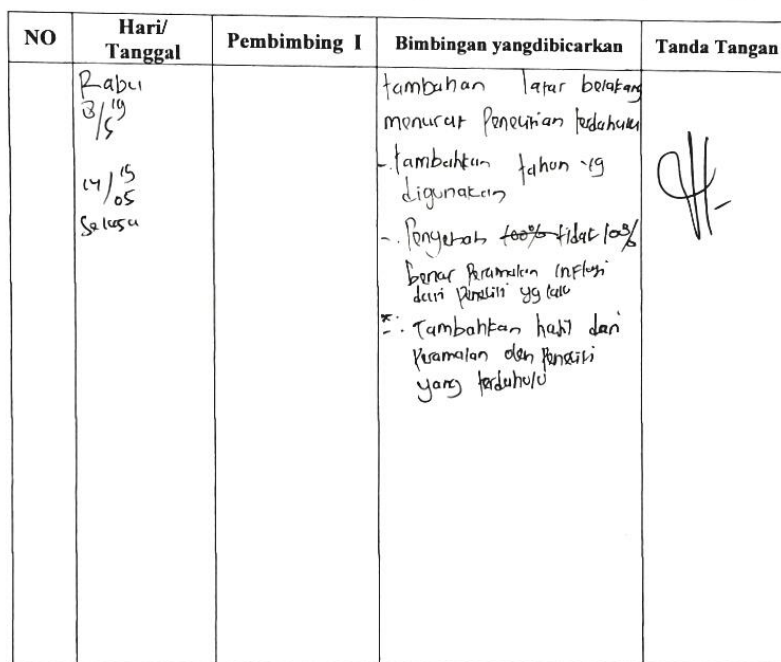 NO
Hari/
Tanggal
Pembimbing I
Bimbingan yangdibicarkan
Tanda Tangan
Rabu
19
5
14/15
05
Selasa
tambahan latar belakang
menurut Penelitian terdahulu
- tambahkan tahun yg
digunakan
- Penyebab 100% tidak 100%
benar Peramalan inflasi
dari Peneliti yg lalu
- Tambahkan hasil dari
Peramalan oleh Peneliti
yang terdahulu